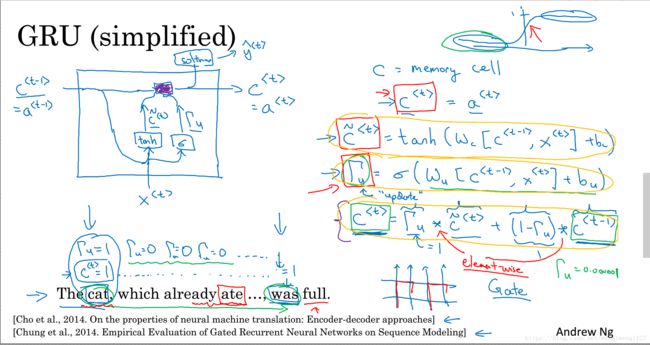 GRU (simplified)
softmax → ŷ<t>
c<t-1>
= a<t-1>
c̃<t>
Γu
tanh
σ
x<t>
c<t>
= a<t>
1
C = memory cell
→ c<t> = a<t>
→ c̃<t> = tanh(Wc[c<t-1>, x<t>] + bc)
→ Γu = σ(Wu[c<t-1>, x<t>] + bu)
"update"
c<t> = Γu * c̃<t> + (1-Γu) * c<t-1>
= 1
element-wise
Gate
Γu = 0.000001
Γu=1 Γu=0 Γu=0 Γu=0 ......
c<t>=1 ......... =1
→ The cat, which already ate …, was full.
[Cho et al., 2014. On the properties of neural machine translation: Encoder-decoder approaches] ←
[Chung et al., 2014. Empirical Evaluation of Gated Recurrent Neural Networks on Sequence Modeling] ←
Andrew Ng